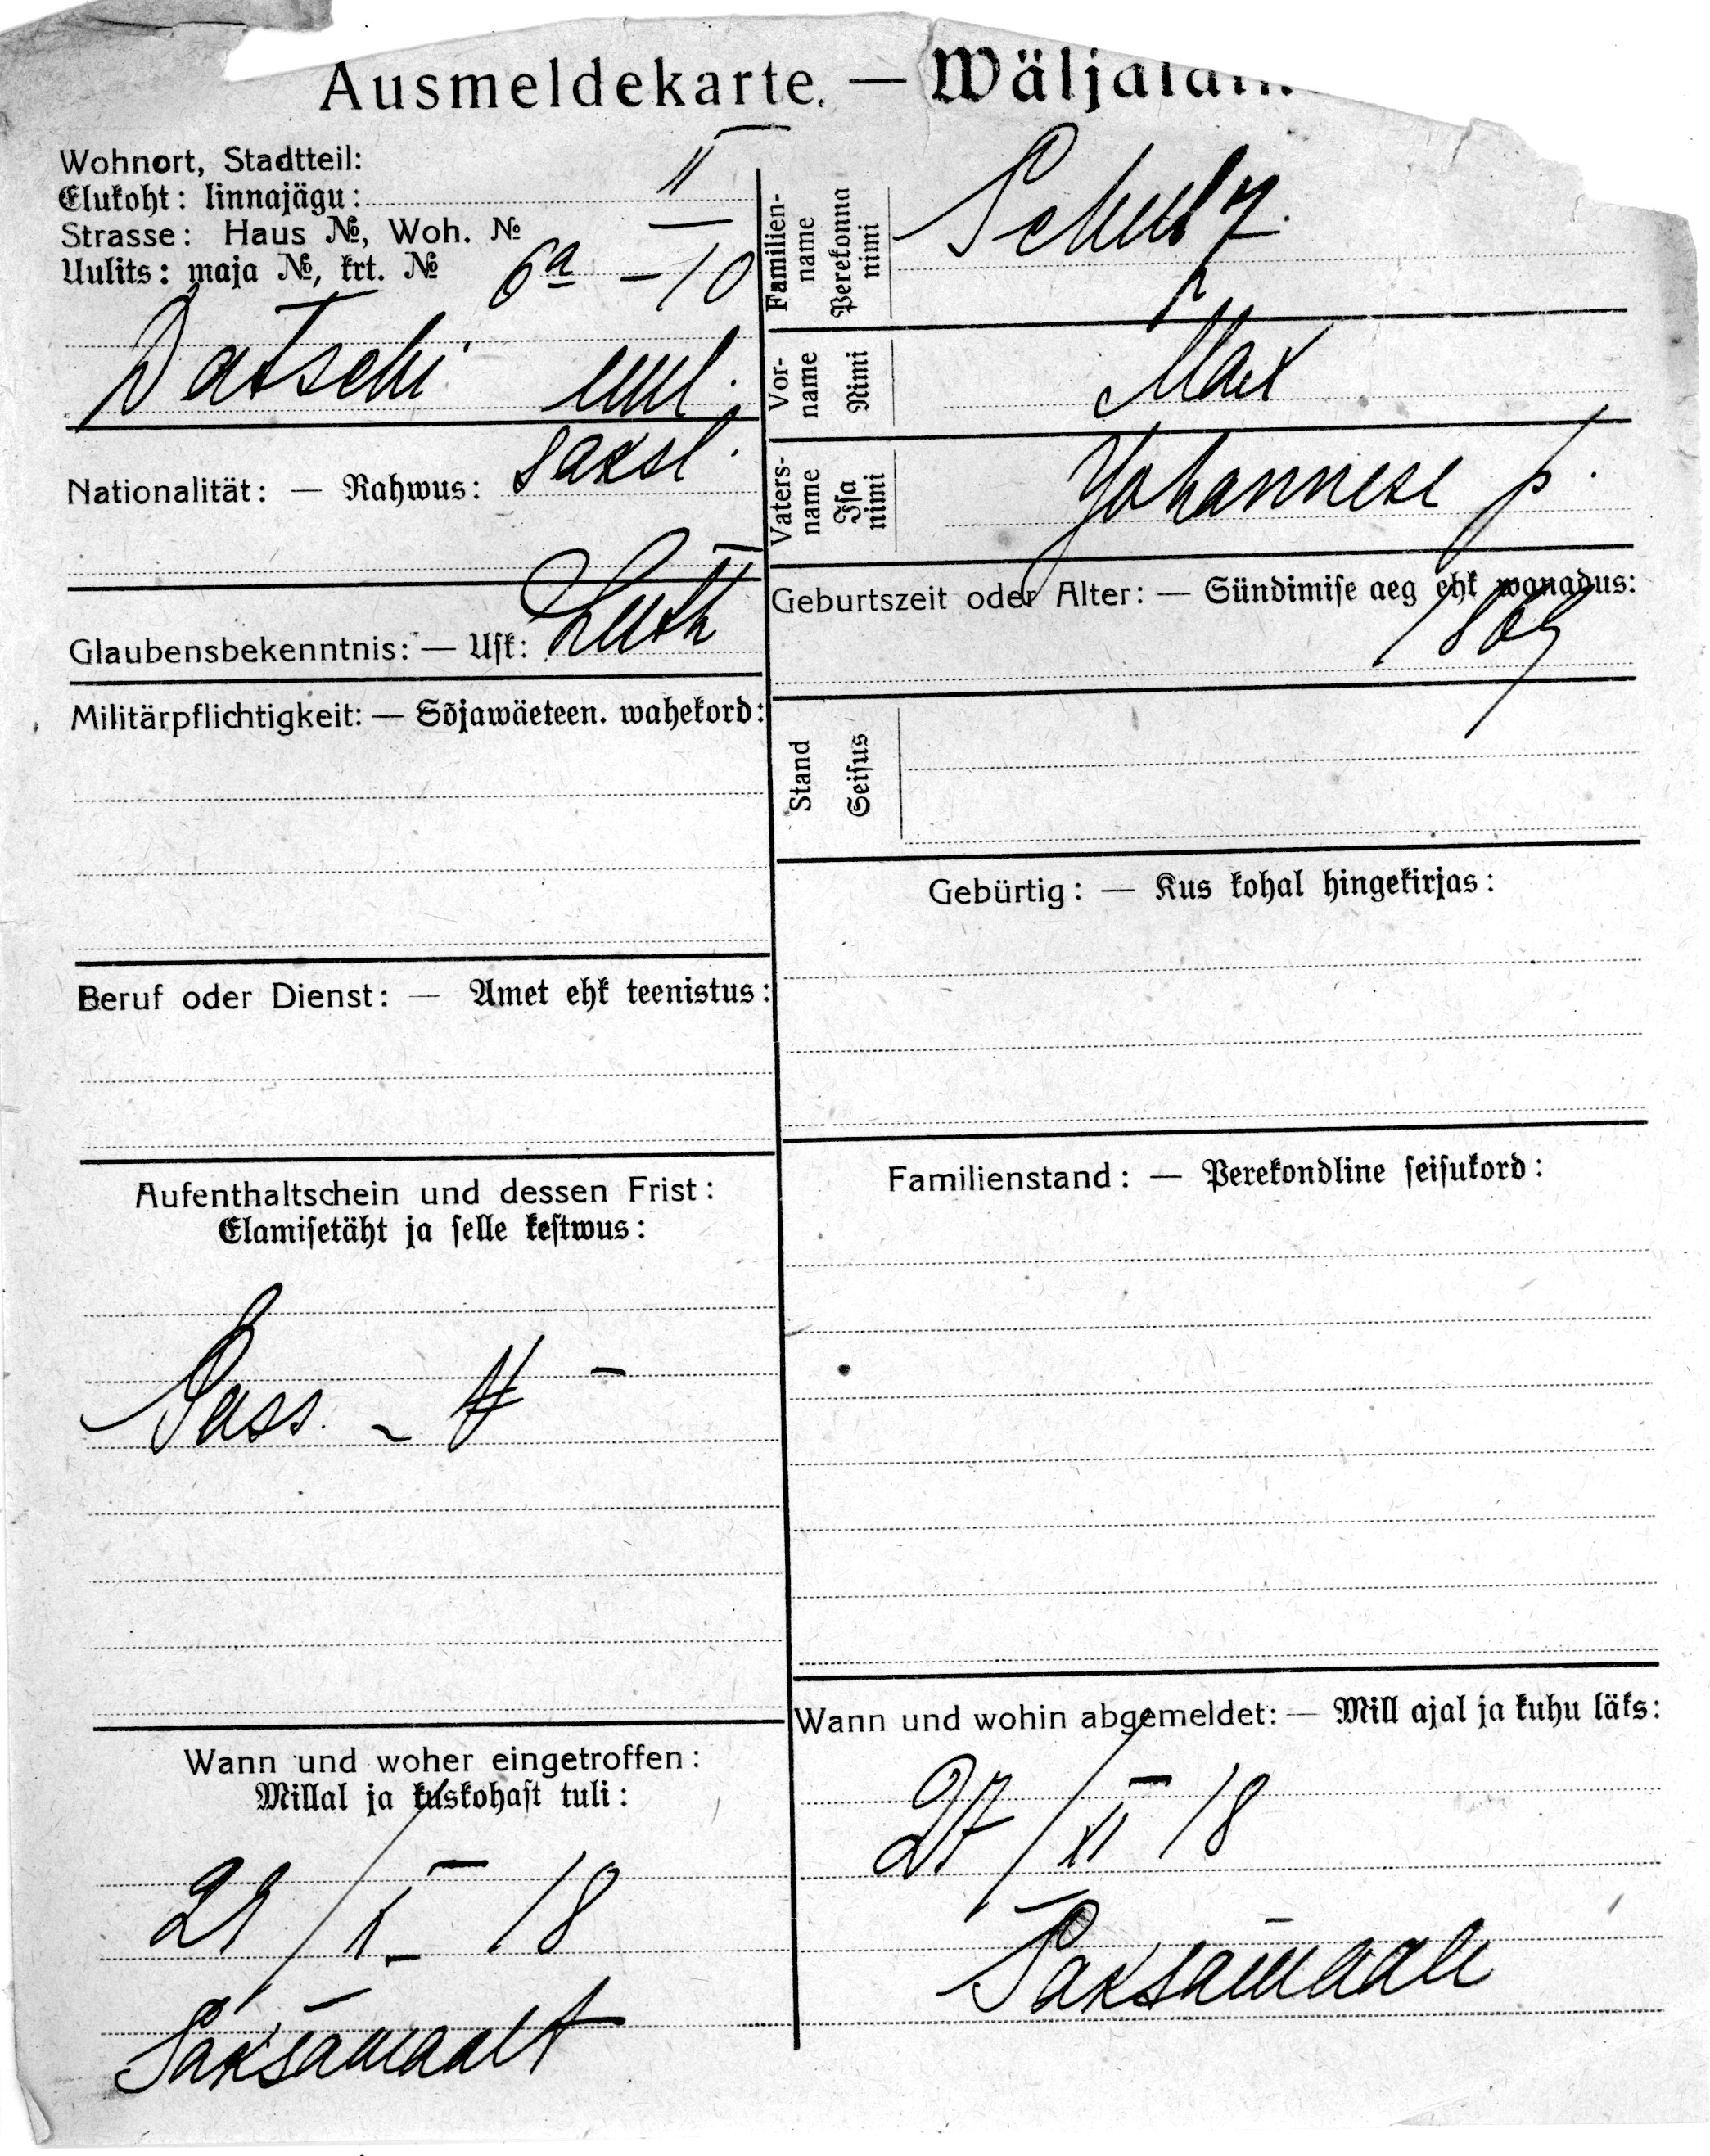 Ausmeldekarte. — Wäljala
Wohnort, Stadtteil:
Elukoht: linnajägu: II
Strasse: Haus №, Woh. №
Uulits: maja №, krt. № 6a – 10
Datschi uul.
Nationalität: — Rahwus: saksl.
Glaubensbekenntnis: — Usk: Luth
Militärpflichtigkeit: — Sõjawäeteen. wahekord:
Beruf oder Dienst: — Amet ehk teenistus:
Aufenthaltschein und dessen Frist:
Elamisetäht ja selle kestwus:
Pass. –
Wann und woher eingetroffen:
Millal ja kuskohast tuli:
18
Saksamaalt
Familien-
name
Perekonna
nimi
Schulz.
Vor-
name
Nimi
Max
Vaters-
name
Isa
nimi
Johannese p.
Geburtszeit oder Alter: — Sündimise aeg ehk wanadus:
1869
Stand
Seisus
Gebürtig: — Kus kohal hingekirjas:
Familienstand: — Perekondline seisukord:
Wann und wohin abgemeldet: — Mill ajal ja kuhu läks:
27/XI 18
Saksamaale